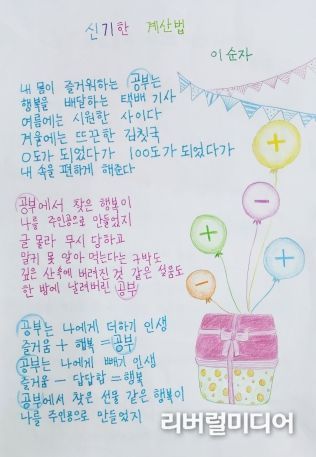 신기한 계산법
이순자
내 몸이 즐거워하는 공부는
행복을 배달하는 택배 기사
여름에는 시원한 사이다
겨울에는 뜨끈한 김칫국
0도가 되었다가 100도가 되었다가
내 속을 편하게 해준다
공부에서 찾은 행복이
나를 주인공으로 만들었지
글 몰라 무시 당하고
말귀 못 알아 먹는다는 구박도
깊은 산속에 버려진 것 같은 설움도
한 방에 날려버린 공부
공부는 나에게 더하기 인생
즐거움 + 행복 = 공부
공부는 나에게 빼기 인생
즐거움 - 답답함 = 행복
공부에서 찾은 선물 같은 행복이
나를 주인공으로 만들었지
리버럴미디어